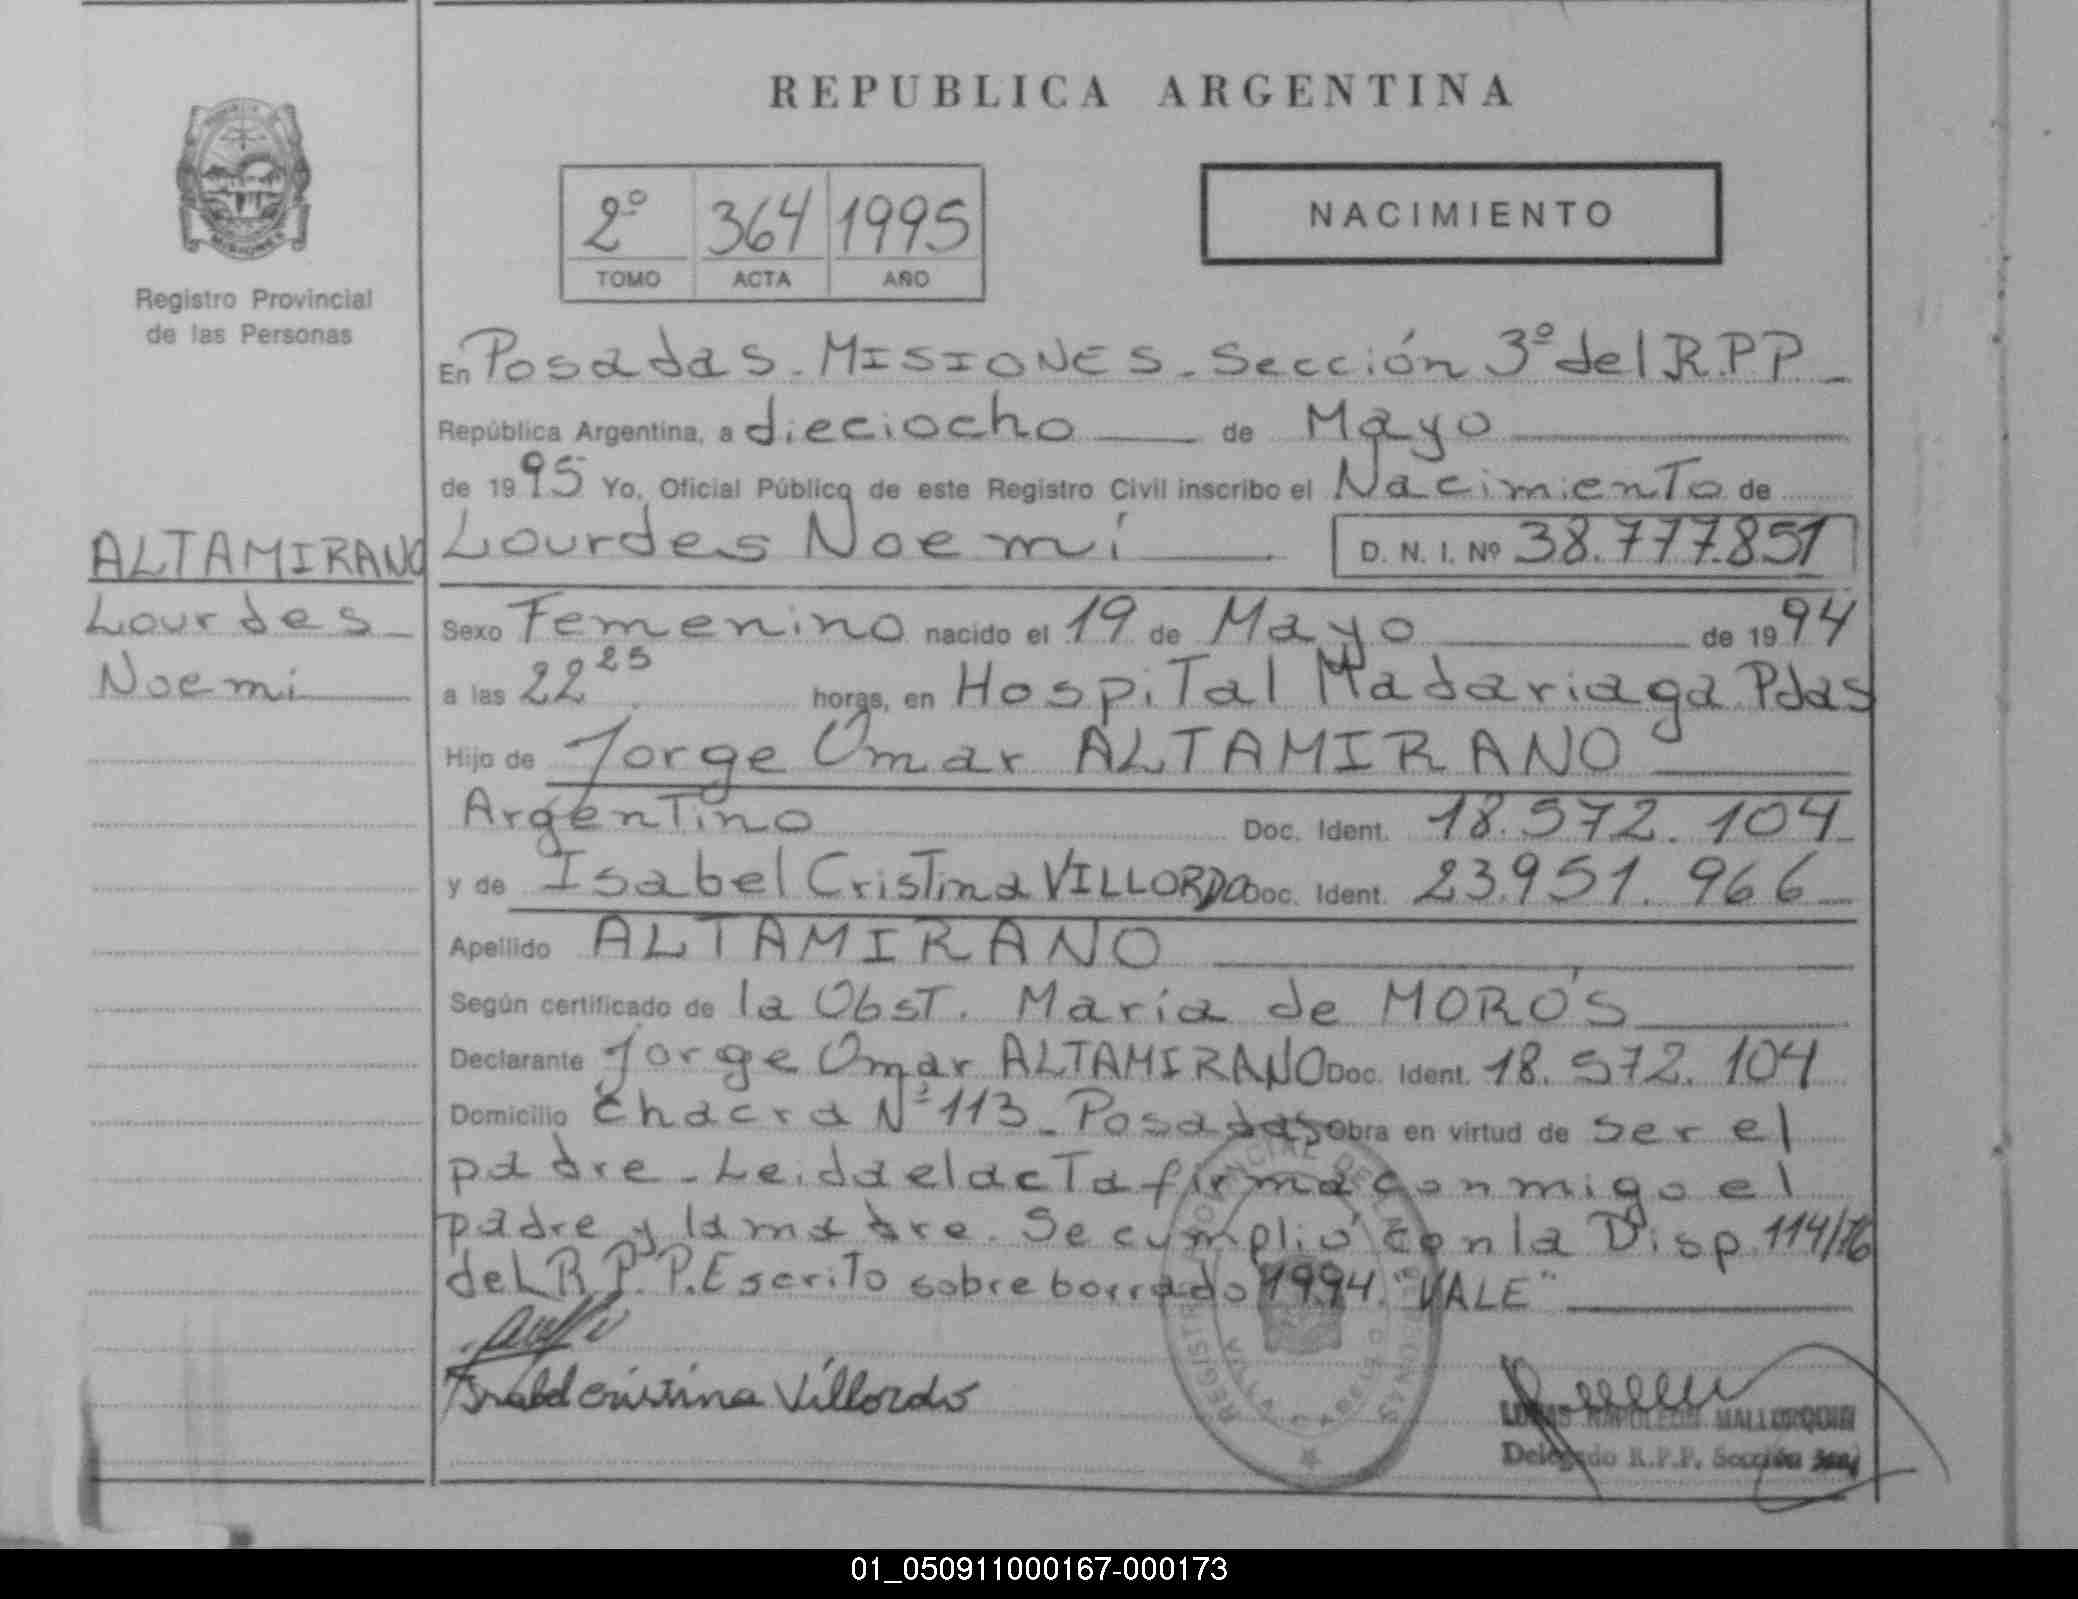 REPUBLICA ARGENTINA
2º 364 1995
TOMO ACTA AÑO
NACIMIENTO
MISIONES
Registro Provincial
de las Personas
En Posadas. MISIONES. Sección 3º del R.P.P.
República Argentina, a dieciocho de Mayo
de 1995 Yo, Oficial Público de este Registro Civil inscribo el Nacimiento de
ALTAMIRANO
Lourdes
Noemi
Lourdes Noemí D. N. I. Nº 38.777.851
Sexo Femenino nacido el 19 de Mayo de 1994
a las 22 25 horas, en Hospital Madariaga Pdas
Hijo de Jorge Omar ALTAMIRANO
Argentino Doc. Ident. 18.572.104
y de Isabel Cristina VILLORDO Doc. Ident. 23.951.966
Apellido ALTAMIRANO
Según certificado de la Obst. María de MORO'S
Declarante Jorge Omar ALTAMIRANO Doc. Ident. 18.572.104
Domicilio Chacra Nº 113 - Posadas Obra en virtud de ser el
padre - Leida el acta firma conmigo el
padre y la madre. Se cumplió con la Disp. 114/76
del R.P.P. Escrito sobre borrado 1994. "VALE"
Isabel cristina Villordo
REGISTRO PROVINCIAL DE LAS PERSONAS
LUCAS NAPOLEON MALLORQUIN
Delegado R.P.P. Sección 3ra
01_050911000167-000173